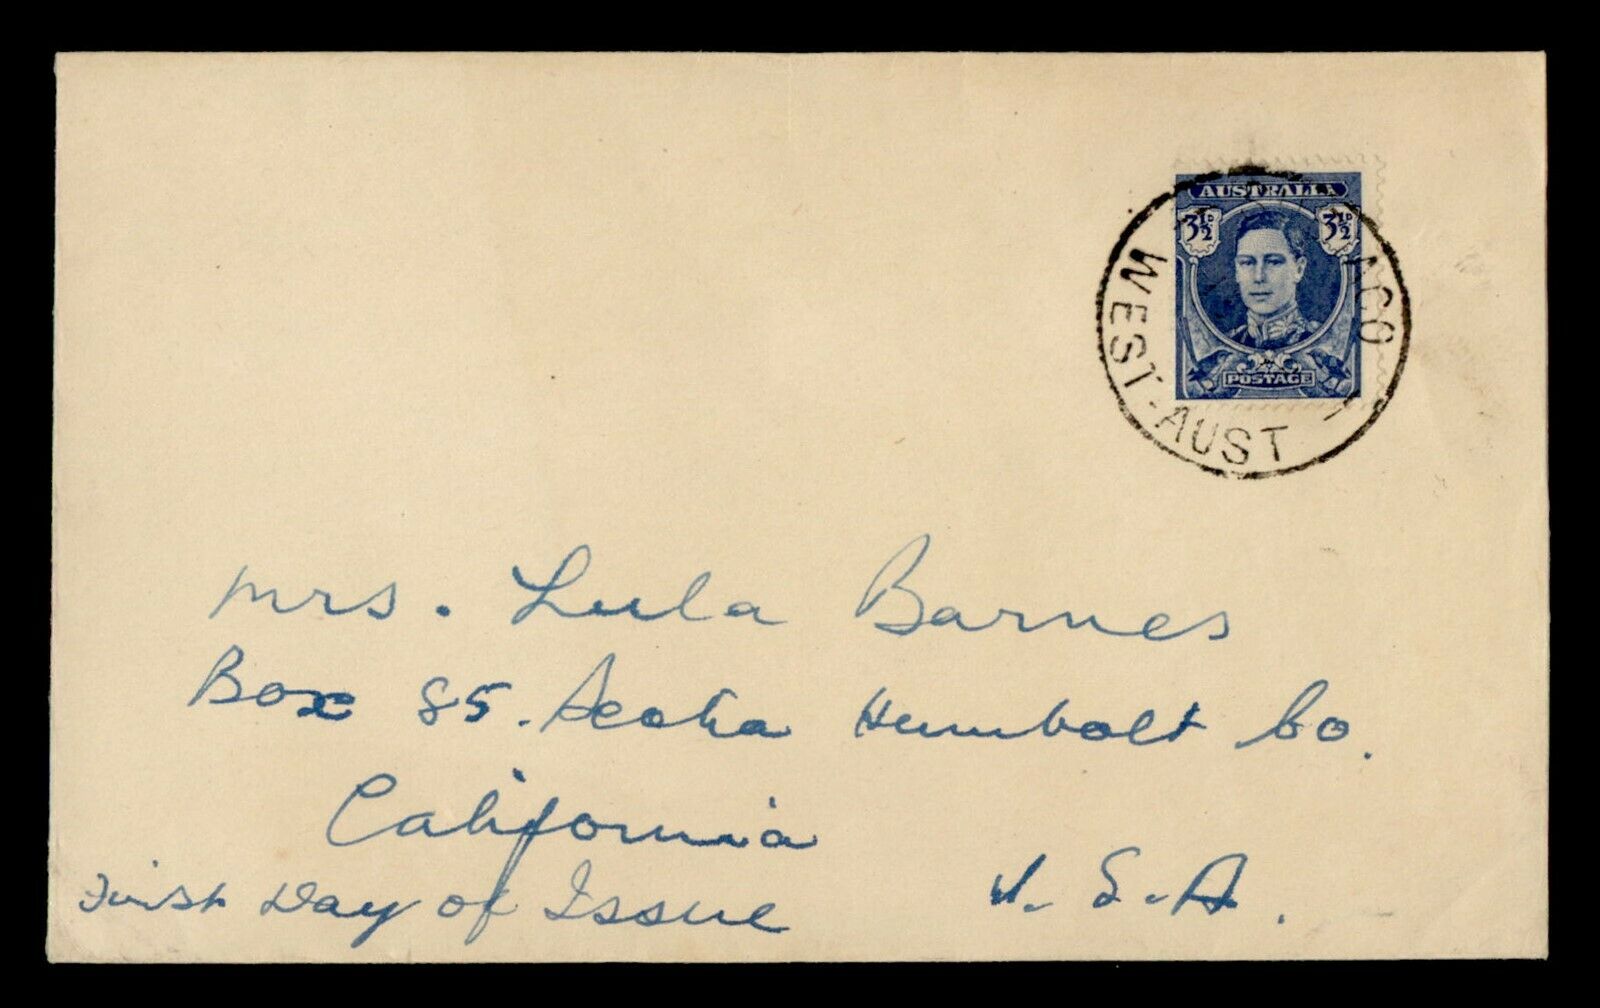 AUSTRALIA
3½D 3½D
POSTAGE
WEST.-AUST
Mrs. Lula Barnes
Box 85. Scotia Humbolt Co.
California
First Day of Issue U.S.A.